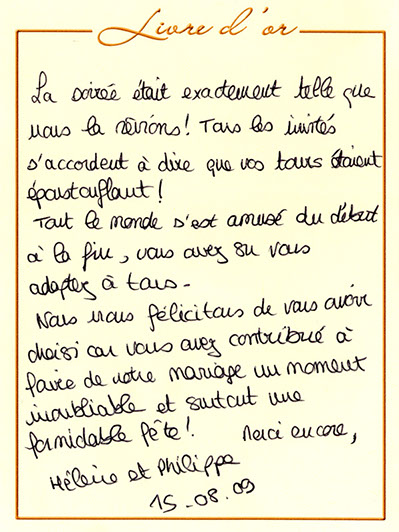 Livre d'or
La soirée était exactement telle que
nous la rêvions ! Tous les invités
s'accordent à dire que vos tours étaient
époustouflant !
Tout le monde s'est amusé du début
à la fin, vous avez su vous
adaptez à tous.
Nous nous félicitons de vous avoir
choisi car vous avez contribué à
faire de notre mariage un moment
inoubliable et surtout une
formidable fête ! Merci encore,
Hélène et Philippe
15-08-09